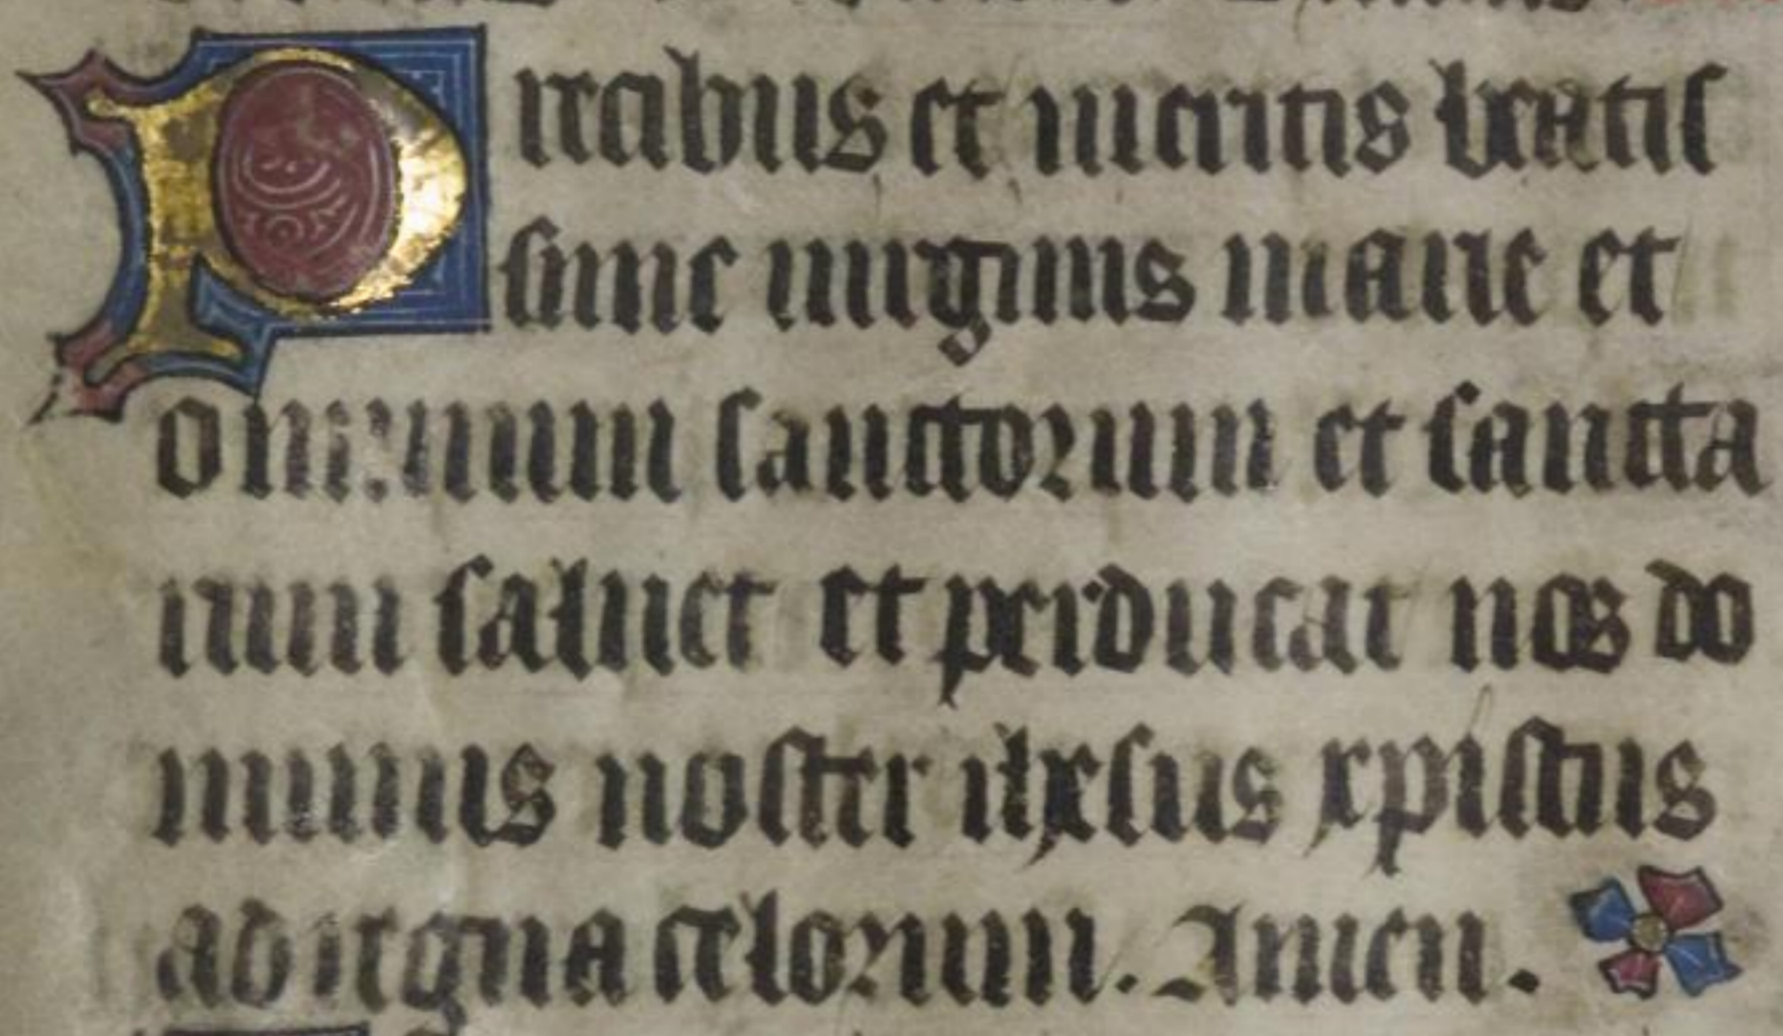 Precibus et meritis beatis
sime uirginis marie et
omnium sanctorum et sancta
rum saluet et perducat nos do
minus noster ihesus xpistus
ad regna celorum. Amen.